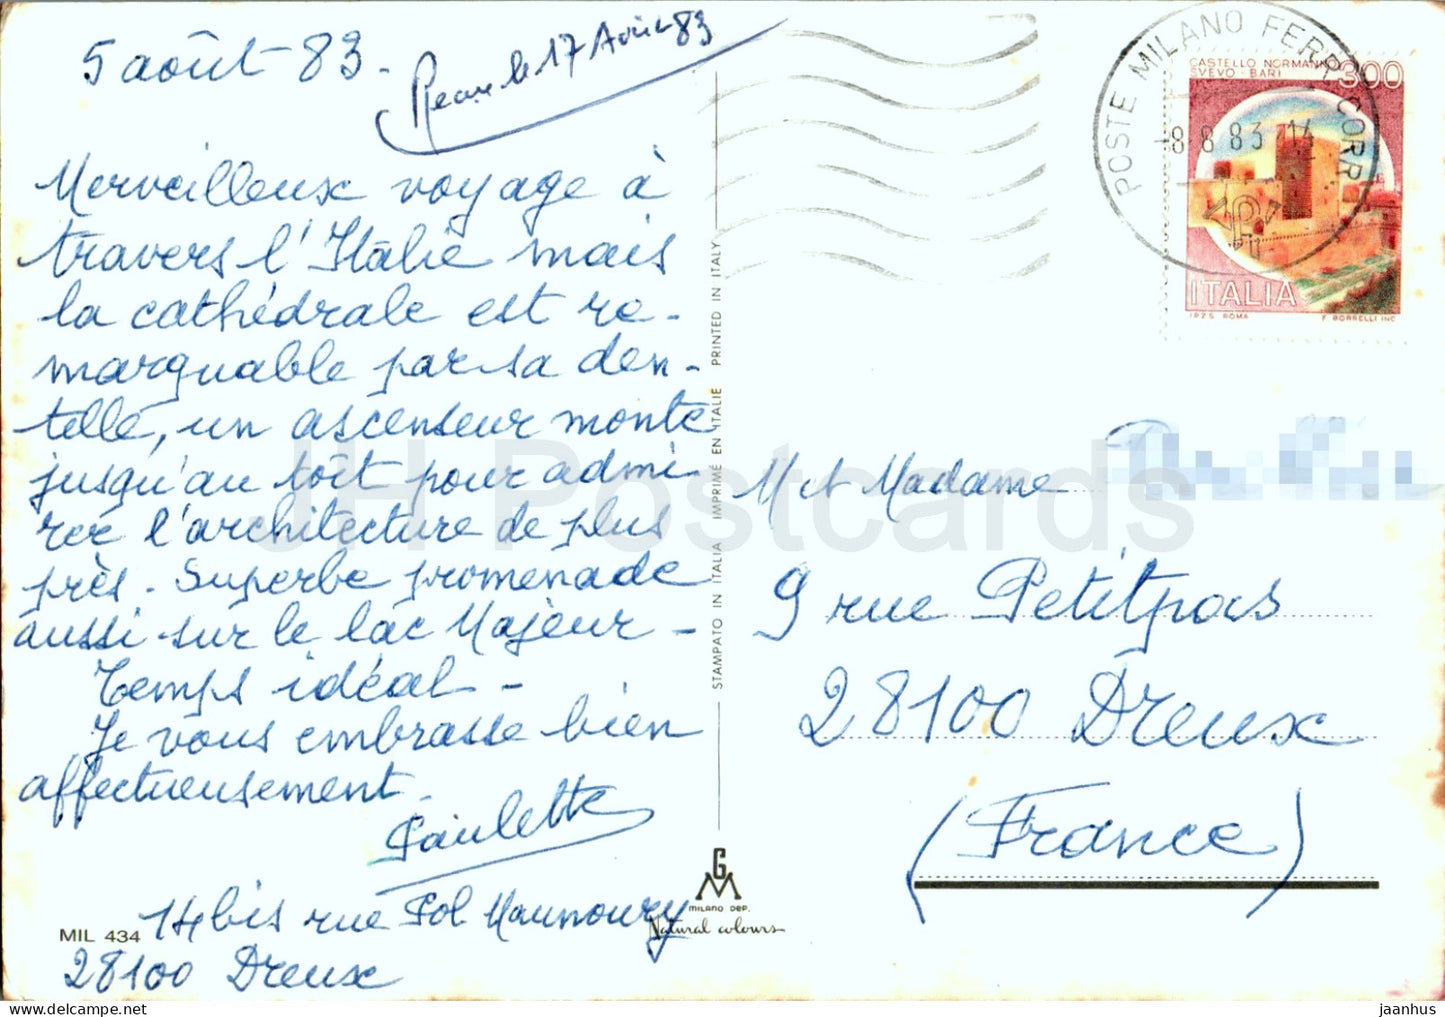 5 août - 83 -
le 17 83
Merveilleux voyage à
travers l'Italie mais
la cathédrale est re-
marquable par sa den-
telle, un ascenseur monte
jusqu'au toît pour admi-
rer l'architecture de plus
près. Superbe promenade
aussi sur le lac Majeur -
Temps idéal -
Je vous embrasse bien
affectueusement.
Paulette
14 bis rue Maunoury
28100 Dreux
MIL 434
STAMPATO IN ITALIA IMPRIMÉ EN ITALIE PRINTED IN ITALY
GM
MILANO DEP.
Natural colours
POSTE MILANO FERR. CORR
-8.8.83.14
CASTELLO NORMANNO
SVEVO - BARI
300
ITALIA
I.P.Z.S. ROMA F. BORRELLI INC.
M et Madame
9 rue Petitpas
28100 Dreux
(France)
JH Postcards
jaanhus @ hipPostcard.com